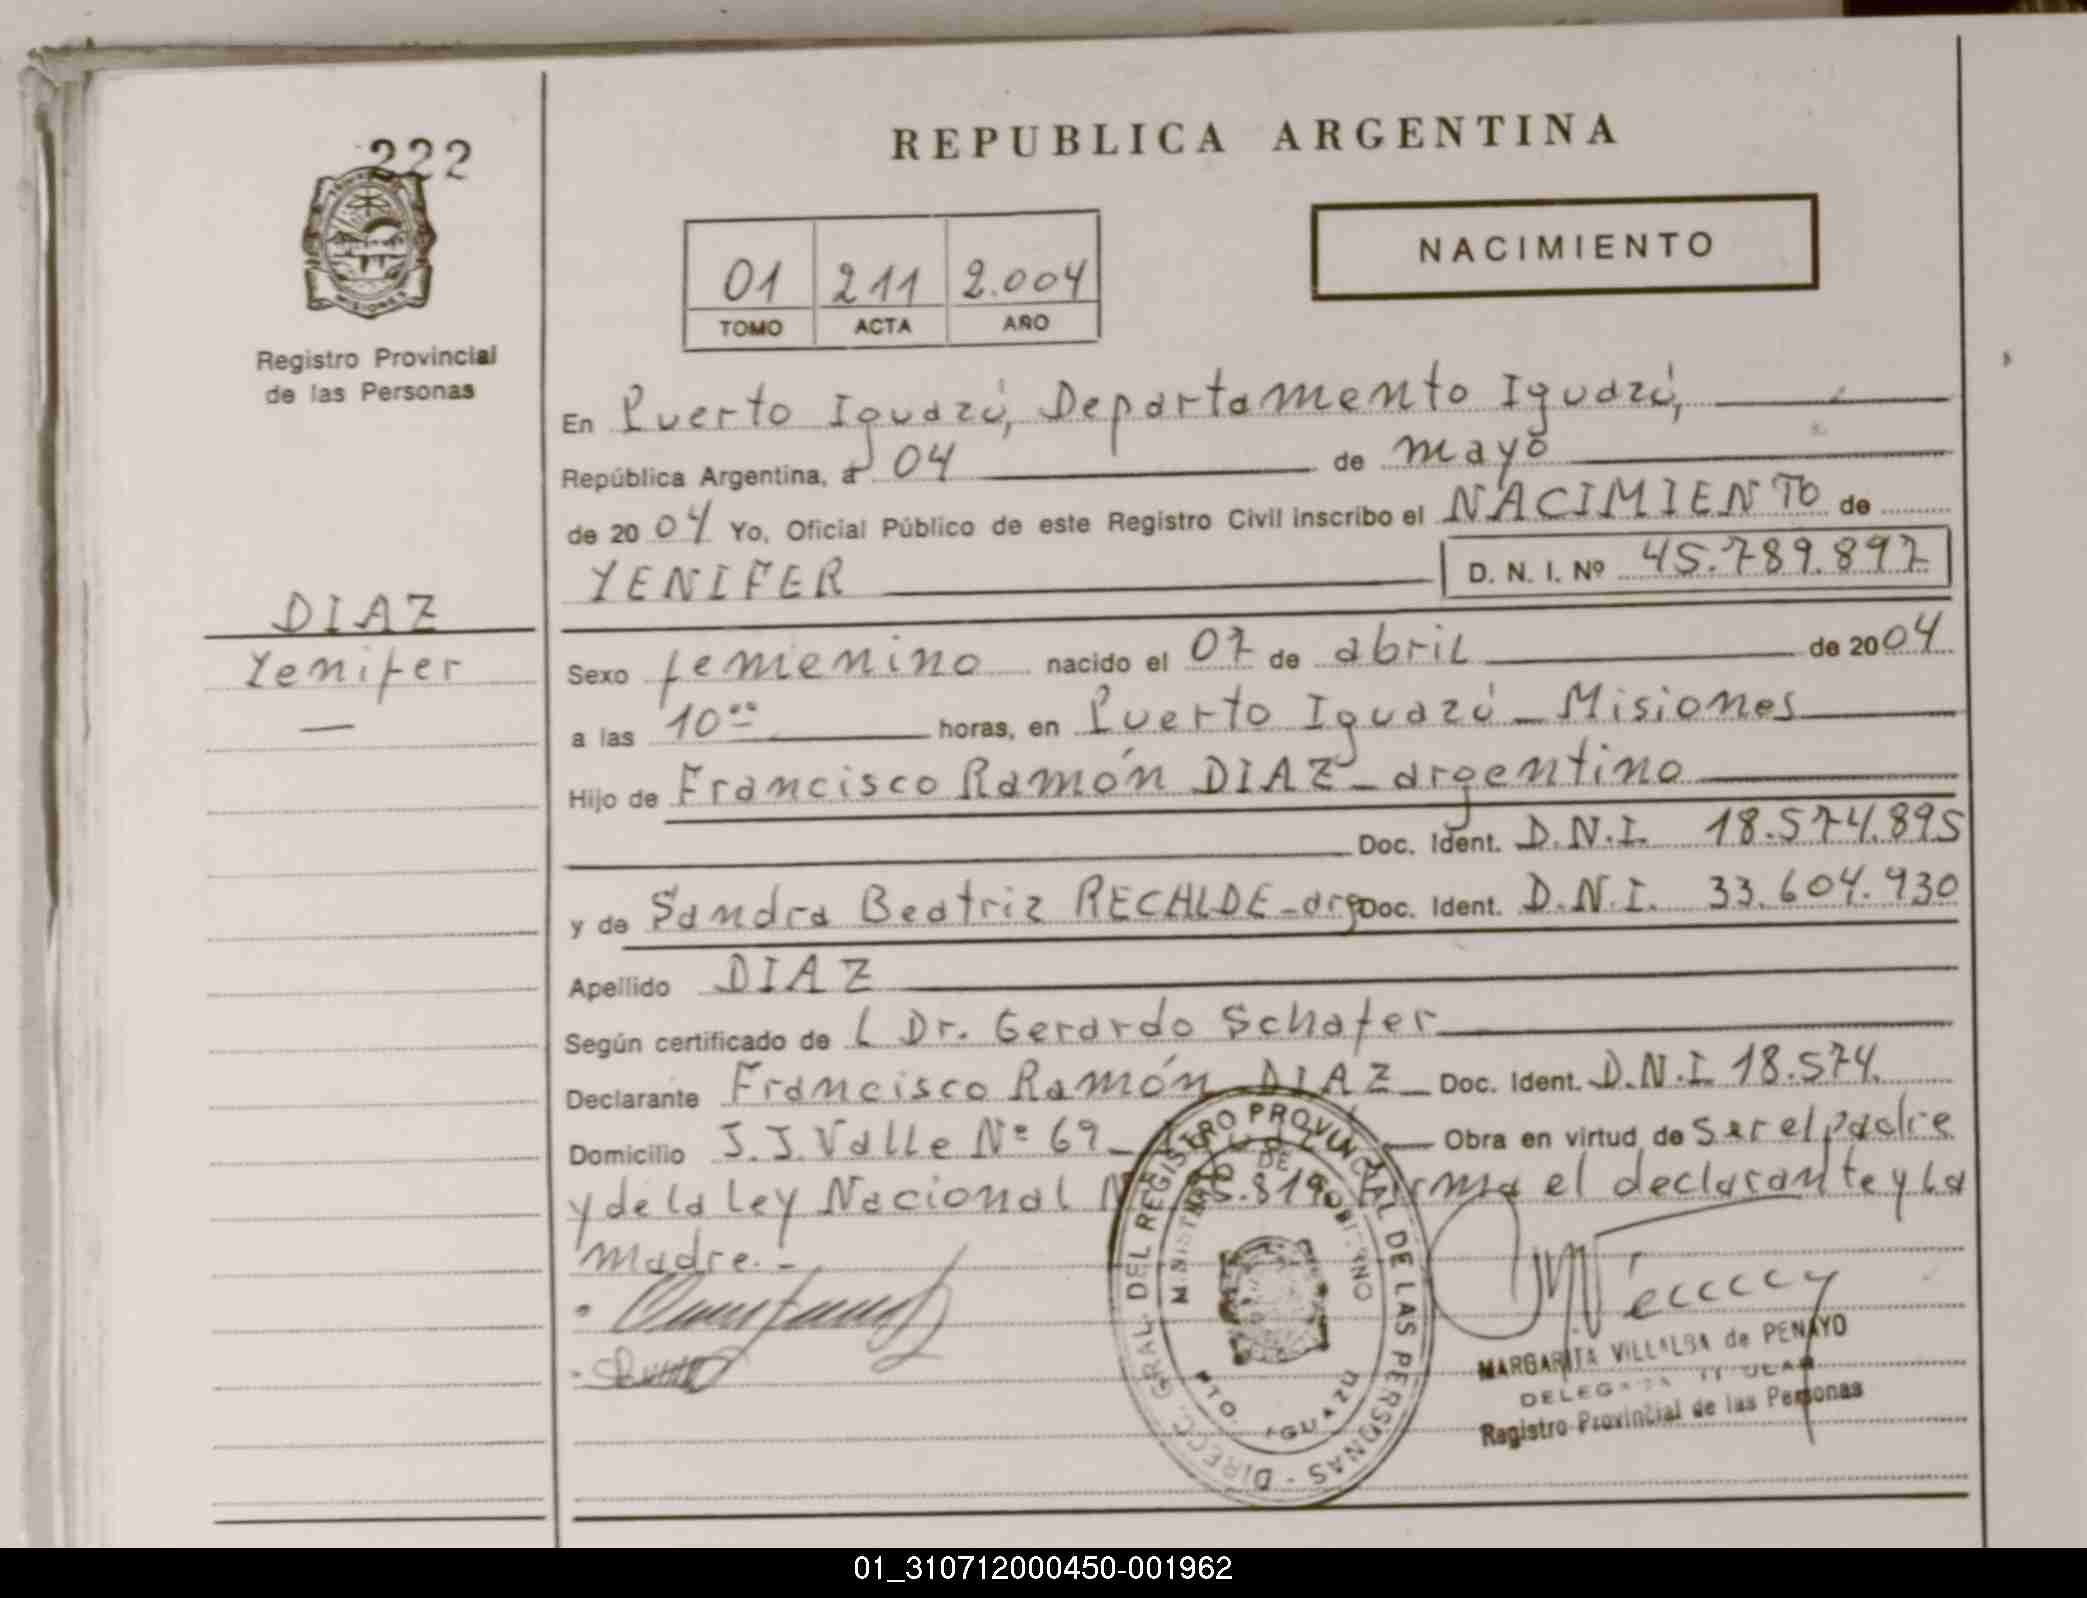 REPUBLICA ARGENTINA
222
MISIONES
Registro Provincial
de las Personas
NACIMIENTO
01 211 2.004
TOMO ACTA AÑO
En Puerto Iguazú, Departamento Iguazú,
República Argentina, a 04 de mayo
de 2004 Yo, Oficial Público de este Registro Civil inscribo el NACIMIENTO de
YENIFER D. N. I. Nº 45.789.897
DIAZ
Yenifer
Sexo femenino nacido el 07 de abril de 2004
a las 10 horas, en Puerto Iguazú - Misiones
Hijo de Francisco Ramón DIAZ - argentino
Doc. Ident. D.N.I. 18.574.895
y de Sandra Beatriz RECALDE - arg Doc. Ident. D.N.I. 33.604.930
Apellido DIAZ
Según certificado de L Dr. Gerardo Schafer
Declarante Francisco Ramón DIAZ - Doc. Ident. D.N.I 18.574.
Domicilio J.J. Valle Nº 69 - Obra en virtud de ser el padre
y de la Ley Nacional firma el declarante y la
madre.-
DIRECC. GRAL. DEL REGISTRO PROVINCIAL DE LAS PERSONAS -
MINISTERIO DE GOBIERNO
PTO. IGUAZU
MARGARITA VILLALBA de PENAYO
DELEGADA TITULAR
Registro Provincial de las Personas
01_310712000450-001962